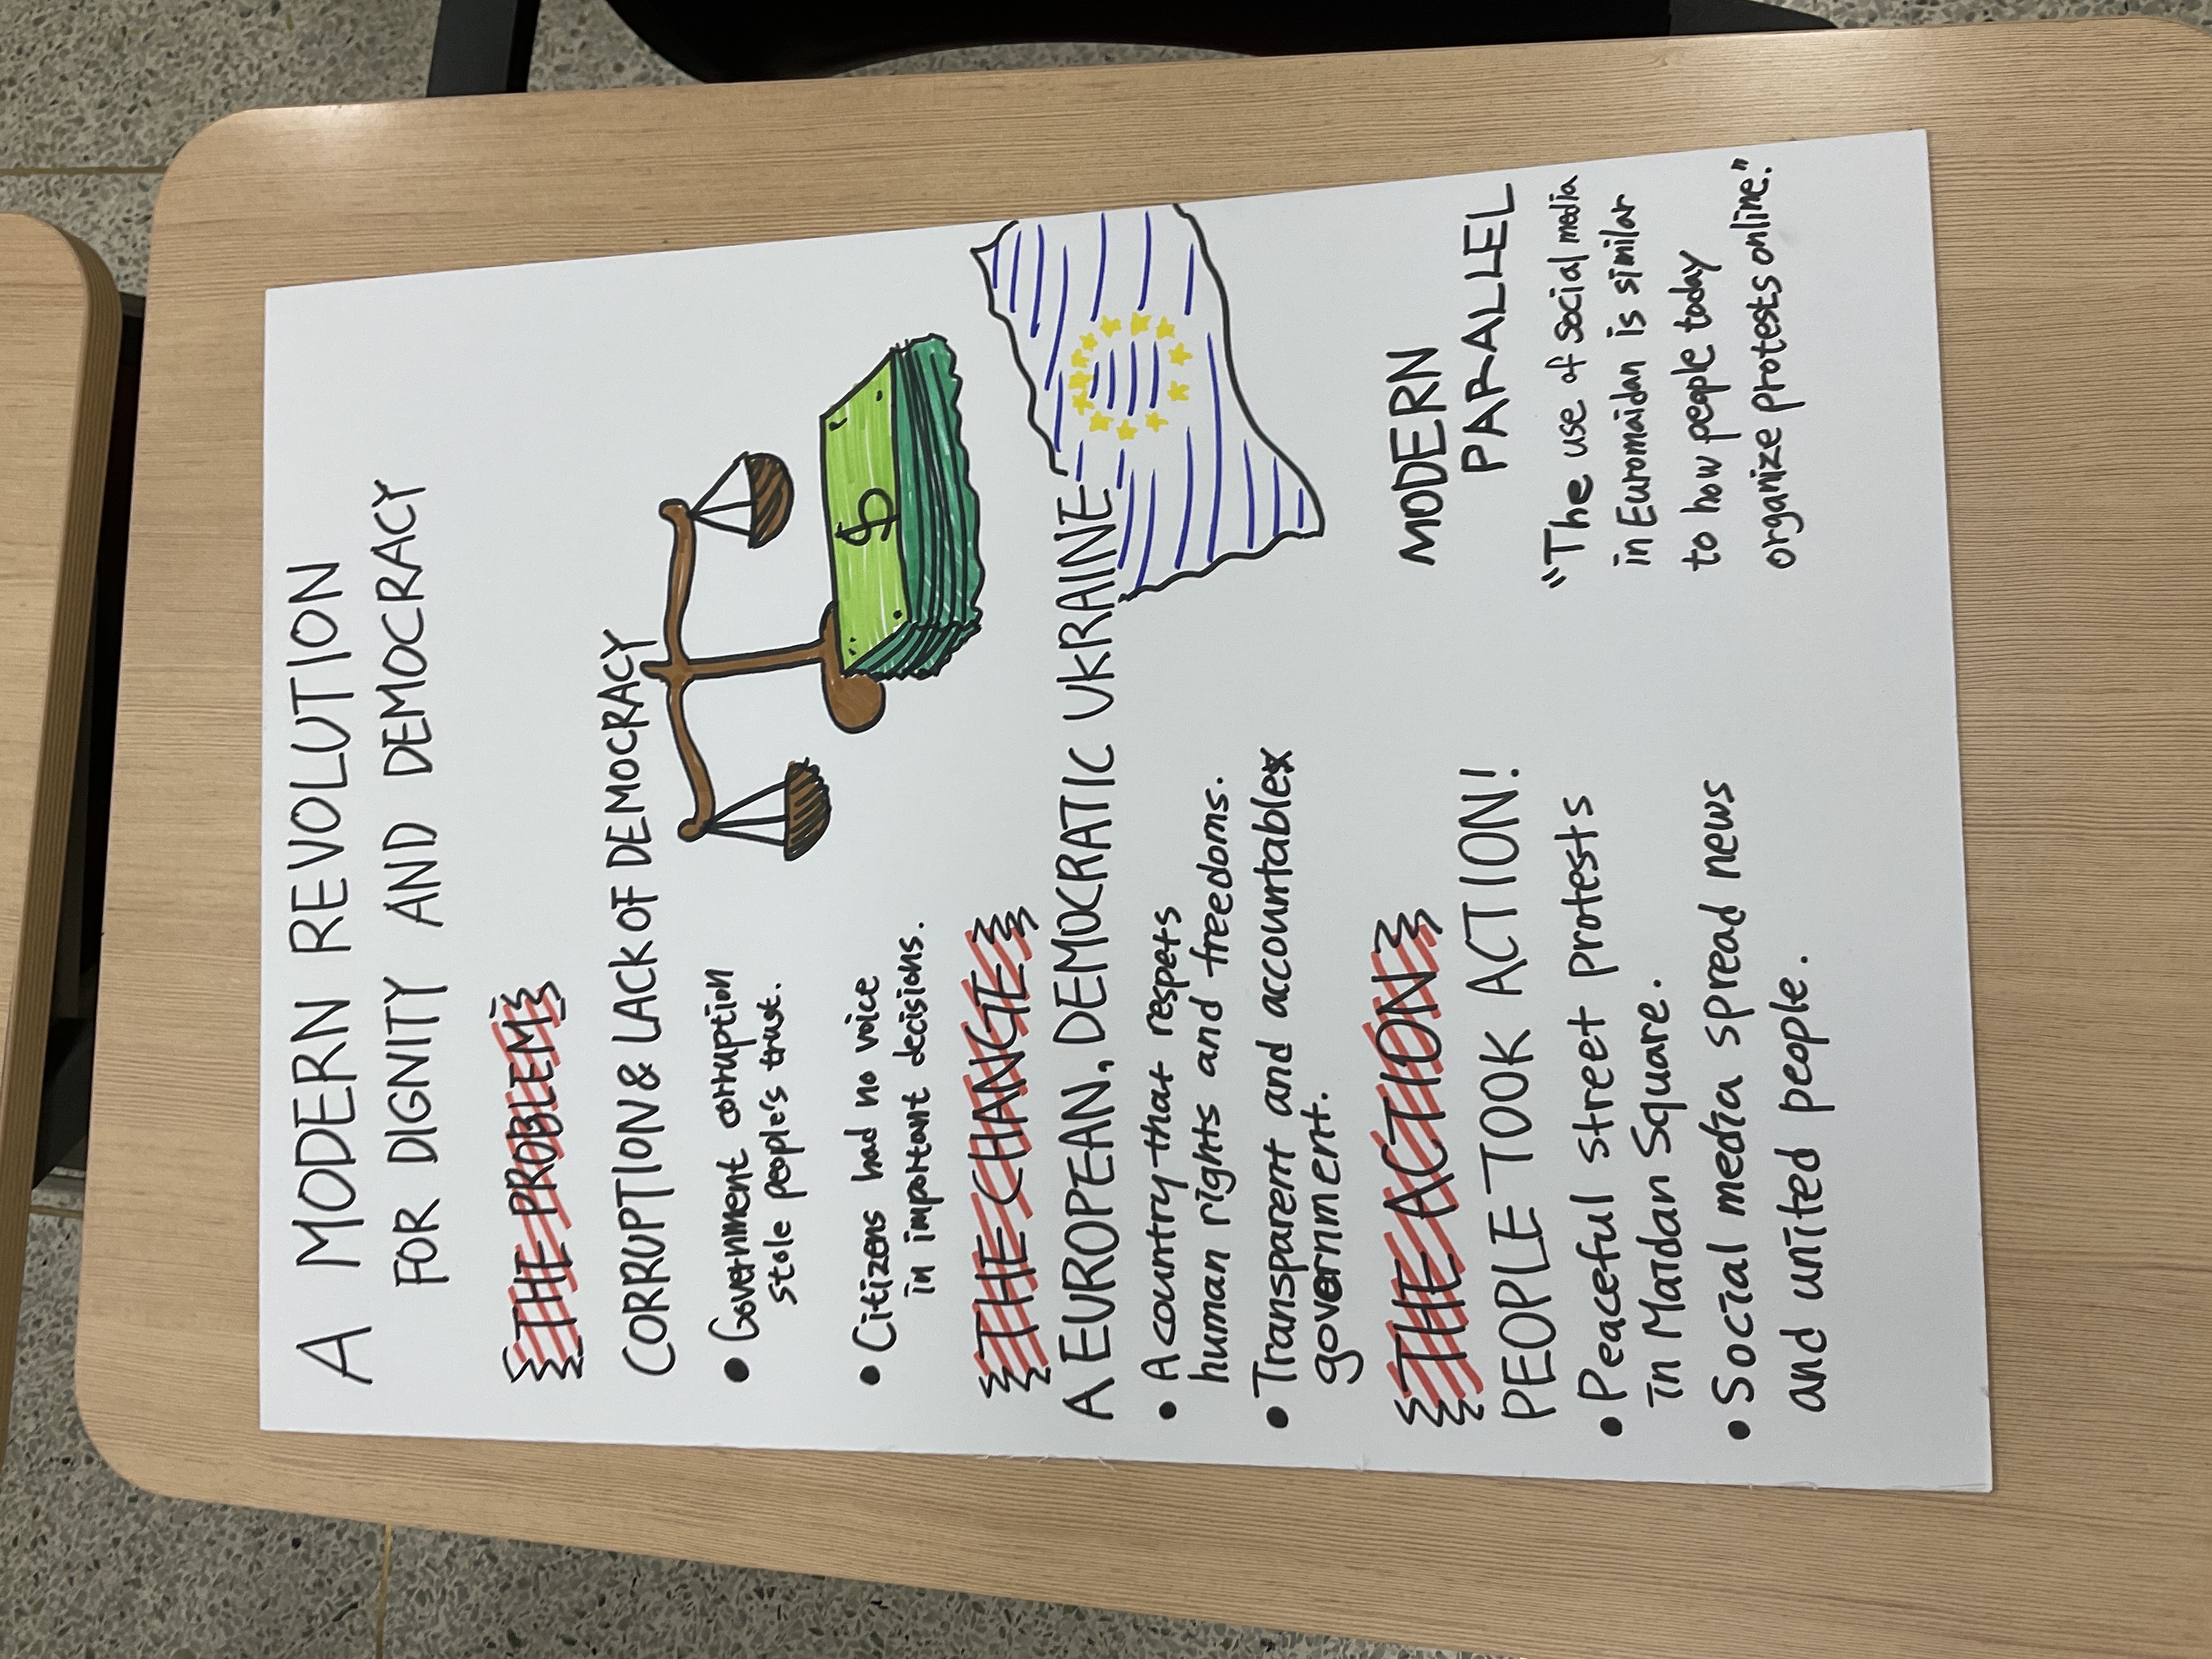 A MODERN REVOLUTION
FOR DIGNITY AND DEMOCRACY
THE PROBLEM
CORRUPTION & LACK OF DEMOCRACY
• Government corruption
stole people's trust.
• Citizens had no voice
in important decisions.
$
THE CHANGE
A EUROPEAN, DEMOCRATIC UKRAINE
• A country that respets
human rights and freedoms.
• Transparent and accountable
government.
THE ACTION
PEOPLE TOOK ACTION!
• Peaceful street protests
in Maidan Square.
• Social media spread news
and united people.
MODERN
PARALLEL
"The use of social media
in Euromaidan is similar
to how people today
organize protests online."